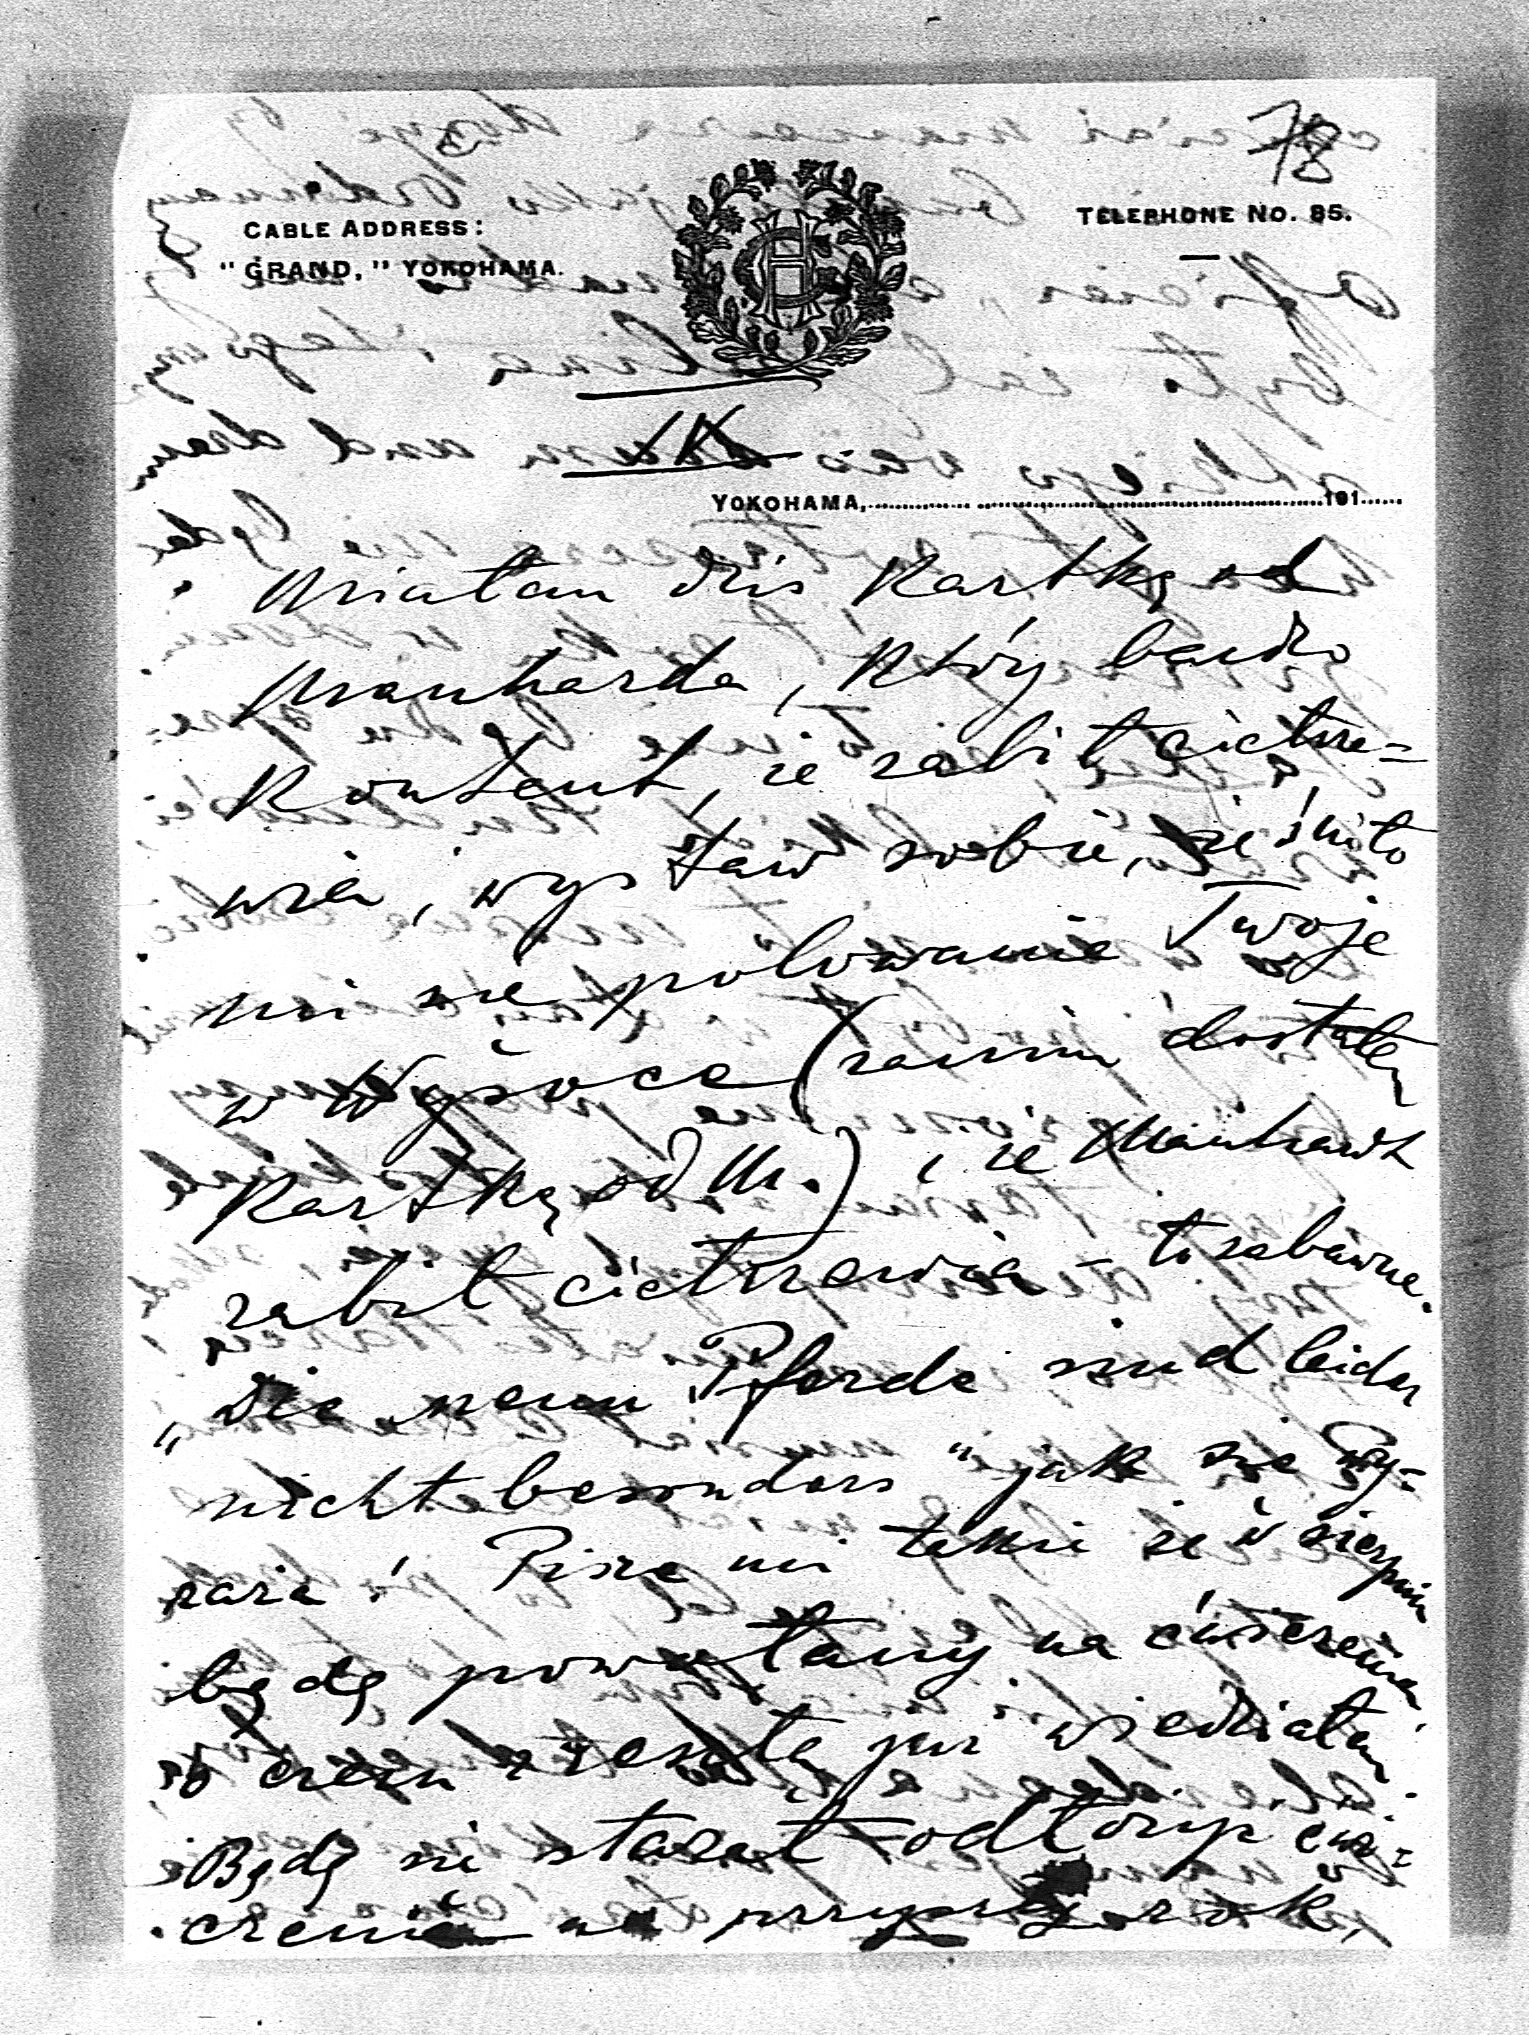 78
CABLE ADDRESS:
"GRAND," YOKOHAMA.
TELEPHONE NO. 85.
IX
YOKOHAMA, 191
Miałam dziś Kartkę od
Manharda, który bardzo
Kontent, że zabił cietrze=
wia, wystaw sobie, że śniło
mi się polowanie Twoje
w Wysocce (zanim dostałem
Kartkę od M.) i że Manhardt
zabił cietrzewia – to zabawne.
„Die neuen Pferde sind leider
nicht besonders" jak się wy=
raża! Pisze mi także że w sierpniu
będę powołany na ćwiczenia,
o czem zresztą już wiedziałem.
Będę się starał odłożyć ćwi=
czenia na przyszły rok,